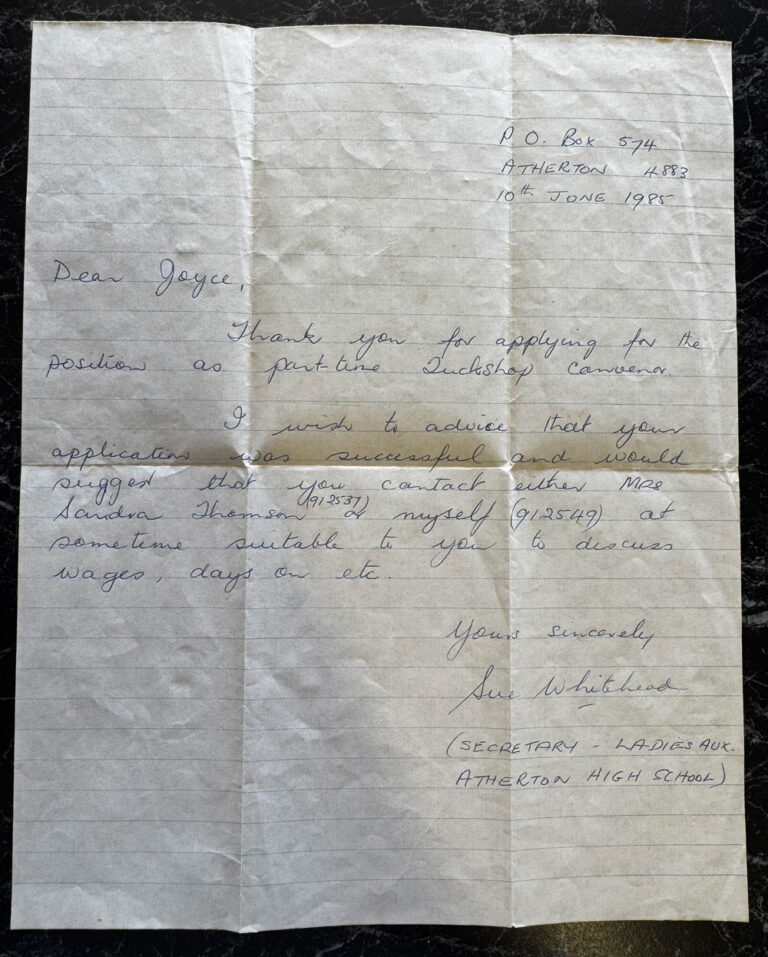 P.O. Box 574
ATHERTON 4883
10th JUNE 1985
Dear Joyce,
Thank you for applying for the
position as part-time Tuckshop Convenor.
I wish to advice that your
application was successful and would
suggest that you contact either Mrs
Sandra Thomson (912537) or myself (912549) at
sometime suitable to you to discuss
wages, days on etc.
Yours sincerely
Sue Whitehead
(SECRETARY - LADIES AUX.
ATHERTON HIGH SCHOOL)